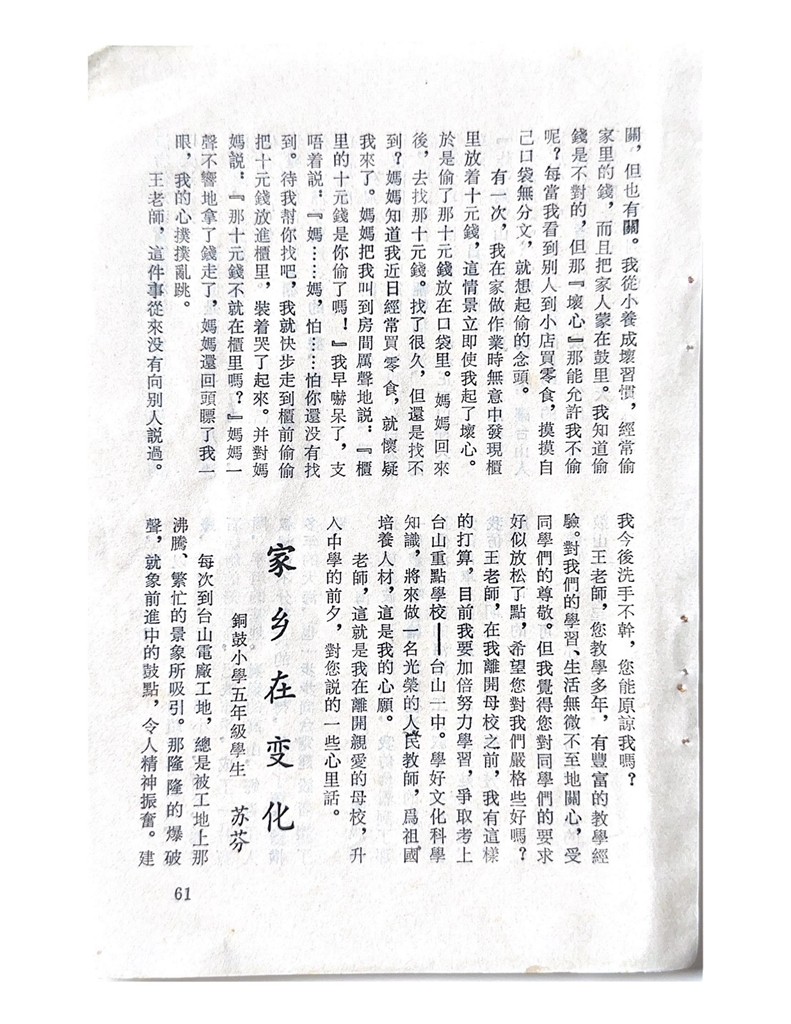 關，但也有關。我從小養成壞習慣，經常偷
家里的錢，而且把家人蒙在鼓里。我知道偷
錢是不對的，但那『壞心』那能允許我不偷
呢？每當我看到別人到小店買零食，摸摸自
己口袋無分文，就想起偷的念頭。
有一次，我在家做作業時無意中發現櫃
里放着十元錢，這情景立即使我起了壞心。
於是偷了那十元錢放在口袋里。媽媽回來
後，去找那十元錢。找了很久，但還是找不
到？媽媽知道我近日經常買零食，就懷疑
我來了。媽媽把我叫到房間厲聲地説：『櫃
里的十元錢是你偷了嗎！』我早嚇呆了，支
唔着説：『媽……媽，怕……怕你還没有找
到。待我幇你找吧，我就快步走到櫃前偷偷
把十元錢放進櫃里，裝着哭了起來。并對媽
媽説：『那十元錢不就在櫃里嗎？』媽媽一
聲不響地拿了錢走了，媽媽還回頭瞟了我一
眼，我的心撲撲亂跳。
王老師，這件事從來没有向別人説過。
我今後洗手不幹，您能原諒我嗎？
王老師，您教學多年，有豐富的教學經
驗。對我們的學習、生活無微不至地關心，受
同學們的尊敬。但我覺得您對同學們的要求
好似放松了點，希望您對我們嚴格些好嗎？
王老師，在我離開母校之前，我有這樣
的打算，目前我要加倍努力學習，爭取考上
台山重點學校——台山一中。學好文化科學
知識，將來做一名光榮的人民教師，爲祖國
培養人材，這是我的心願。
老師，這就是我在離開親愛的母校，升
入中學的前夕，對您説的一些心里話。
家乡在变化
銅鼓小學五年級學生 苏芬
每次到台山電廠工地，總是被工地上那
沸騰、繁忙的景象所吸引。那隆隆的爆破
聲，就象前進中的鼓點，令人精神振奮。建
61